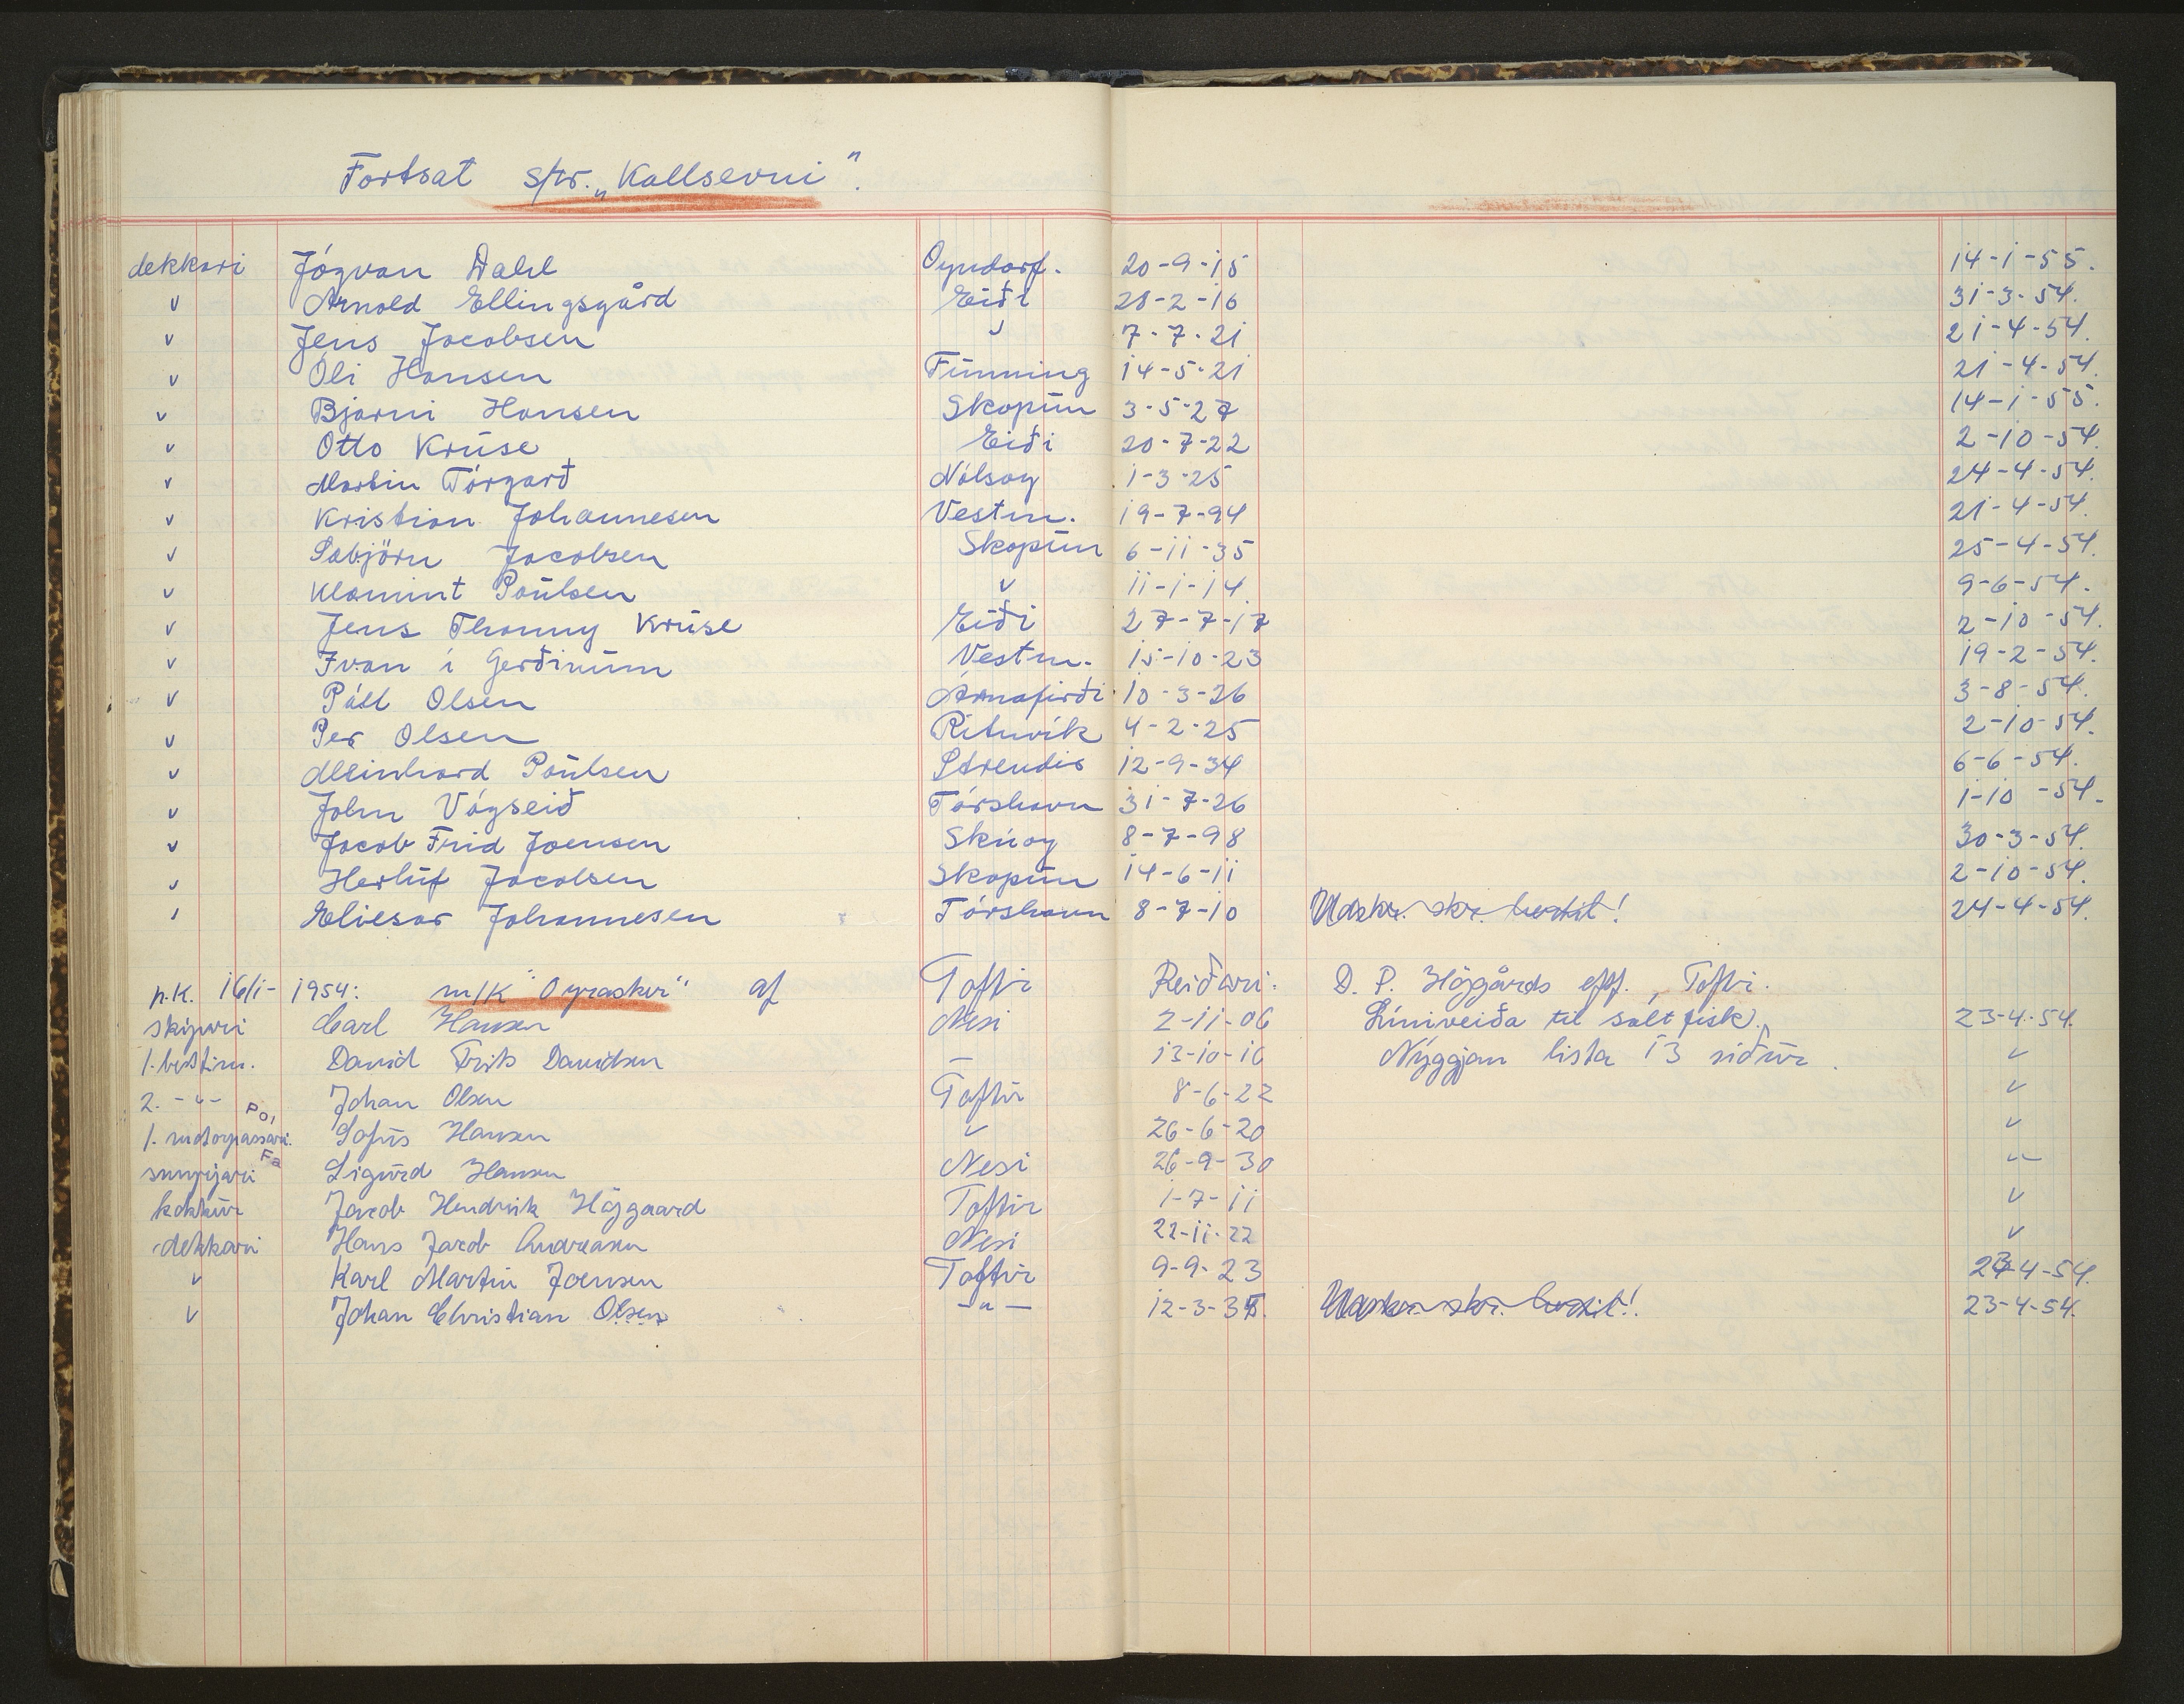 Fortsat s/tr. „Kallsevni".
dekkari Jógvan Dahl Oyndarf. 20-9-15 14-1-55.
v Arnold Ellingsgård Eiði 28-2-16 31-3-54.
v Jens Jacobsen v 7-7-21 21-4-54.
v Óli Hansen Funning 14-5-21 21-4-54.
v Bjarni Hansen Skopun 3-5-27 14-1-55.
v Otto Kruse Eiði 20-7-22 2-10-54.
v Martin Tórgarð Nólsoy 1-3-25 24-4-54.
v Kristian Johannesen Vestm. 19-7-94 21-4-54.
v Jacobsen Skopun 6-11-35 25-4-54.
v Klamint Poulsen v 11-1-14 9-6-54.
v Jens Thonny Kruse Eiði 27-7-17 2-10-54.
v Ivan í Gerðinum Vestm. 15-10-23 19-2-54.
v Páll Olsen Árnafirði 10-3-26 3-8-54.
v Per Olsen Rituvík 4-2-25 2-10-54.
v Meinhard Poulsen Strendir 12-9-34 6-6-54.
v John Vágseið Tórshavn 31-7-26 1-10-54.
v Jacob Frid Joensen Skúoy 8-7-98 30-3-54.
v Herluf Jacobsen Skopun 14-6-11 2-10-54.
v Eliesar Johannesen Tórshavn 8-7-10 Udskr. skr. hertil! 24-4-54.
p.k. 16/1- 1954: m/k "Oyrasker" af Toftir Reiðari: D. P. Höjgårds eff., Toftir.
skipari Carl Hansen Nesi 2-11-06 Líniveiða til saltfisk. 23-4-54.
1. bestim. David Frits Davidsen — 13-10-10 Nýggjan lista 13 síður. v
2. -"- Johan Olsen Toftir 8-6-22 v
1. motorpassari Sofus Hansen v 26-6-20 v
smyrjari Sigurd Hansen Nesi 26-9-30 -"-
kokkur Jacob Hendrik Höjgaard Toftir 1-7-11 v
dekkari Hans Jacob Andreasen Nesi 22-11-22 v
v Karl Martin Joensen Toftir 9-9-23 23-4-54.
v Johan Christian Olsen -"- 12-3-35. Udskr. skr. hertil! 23-4-54.